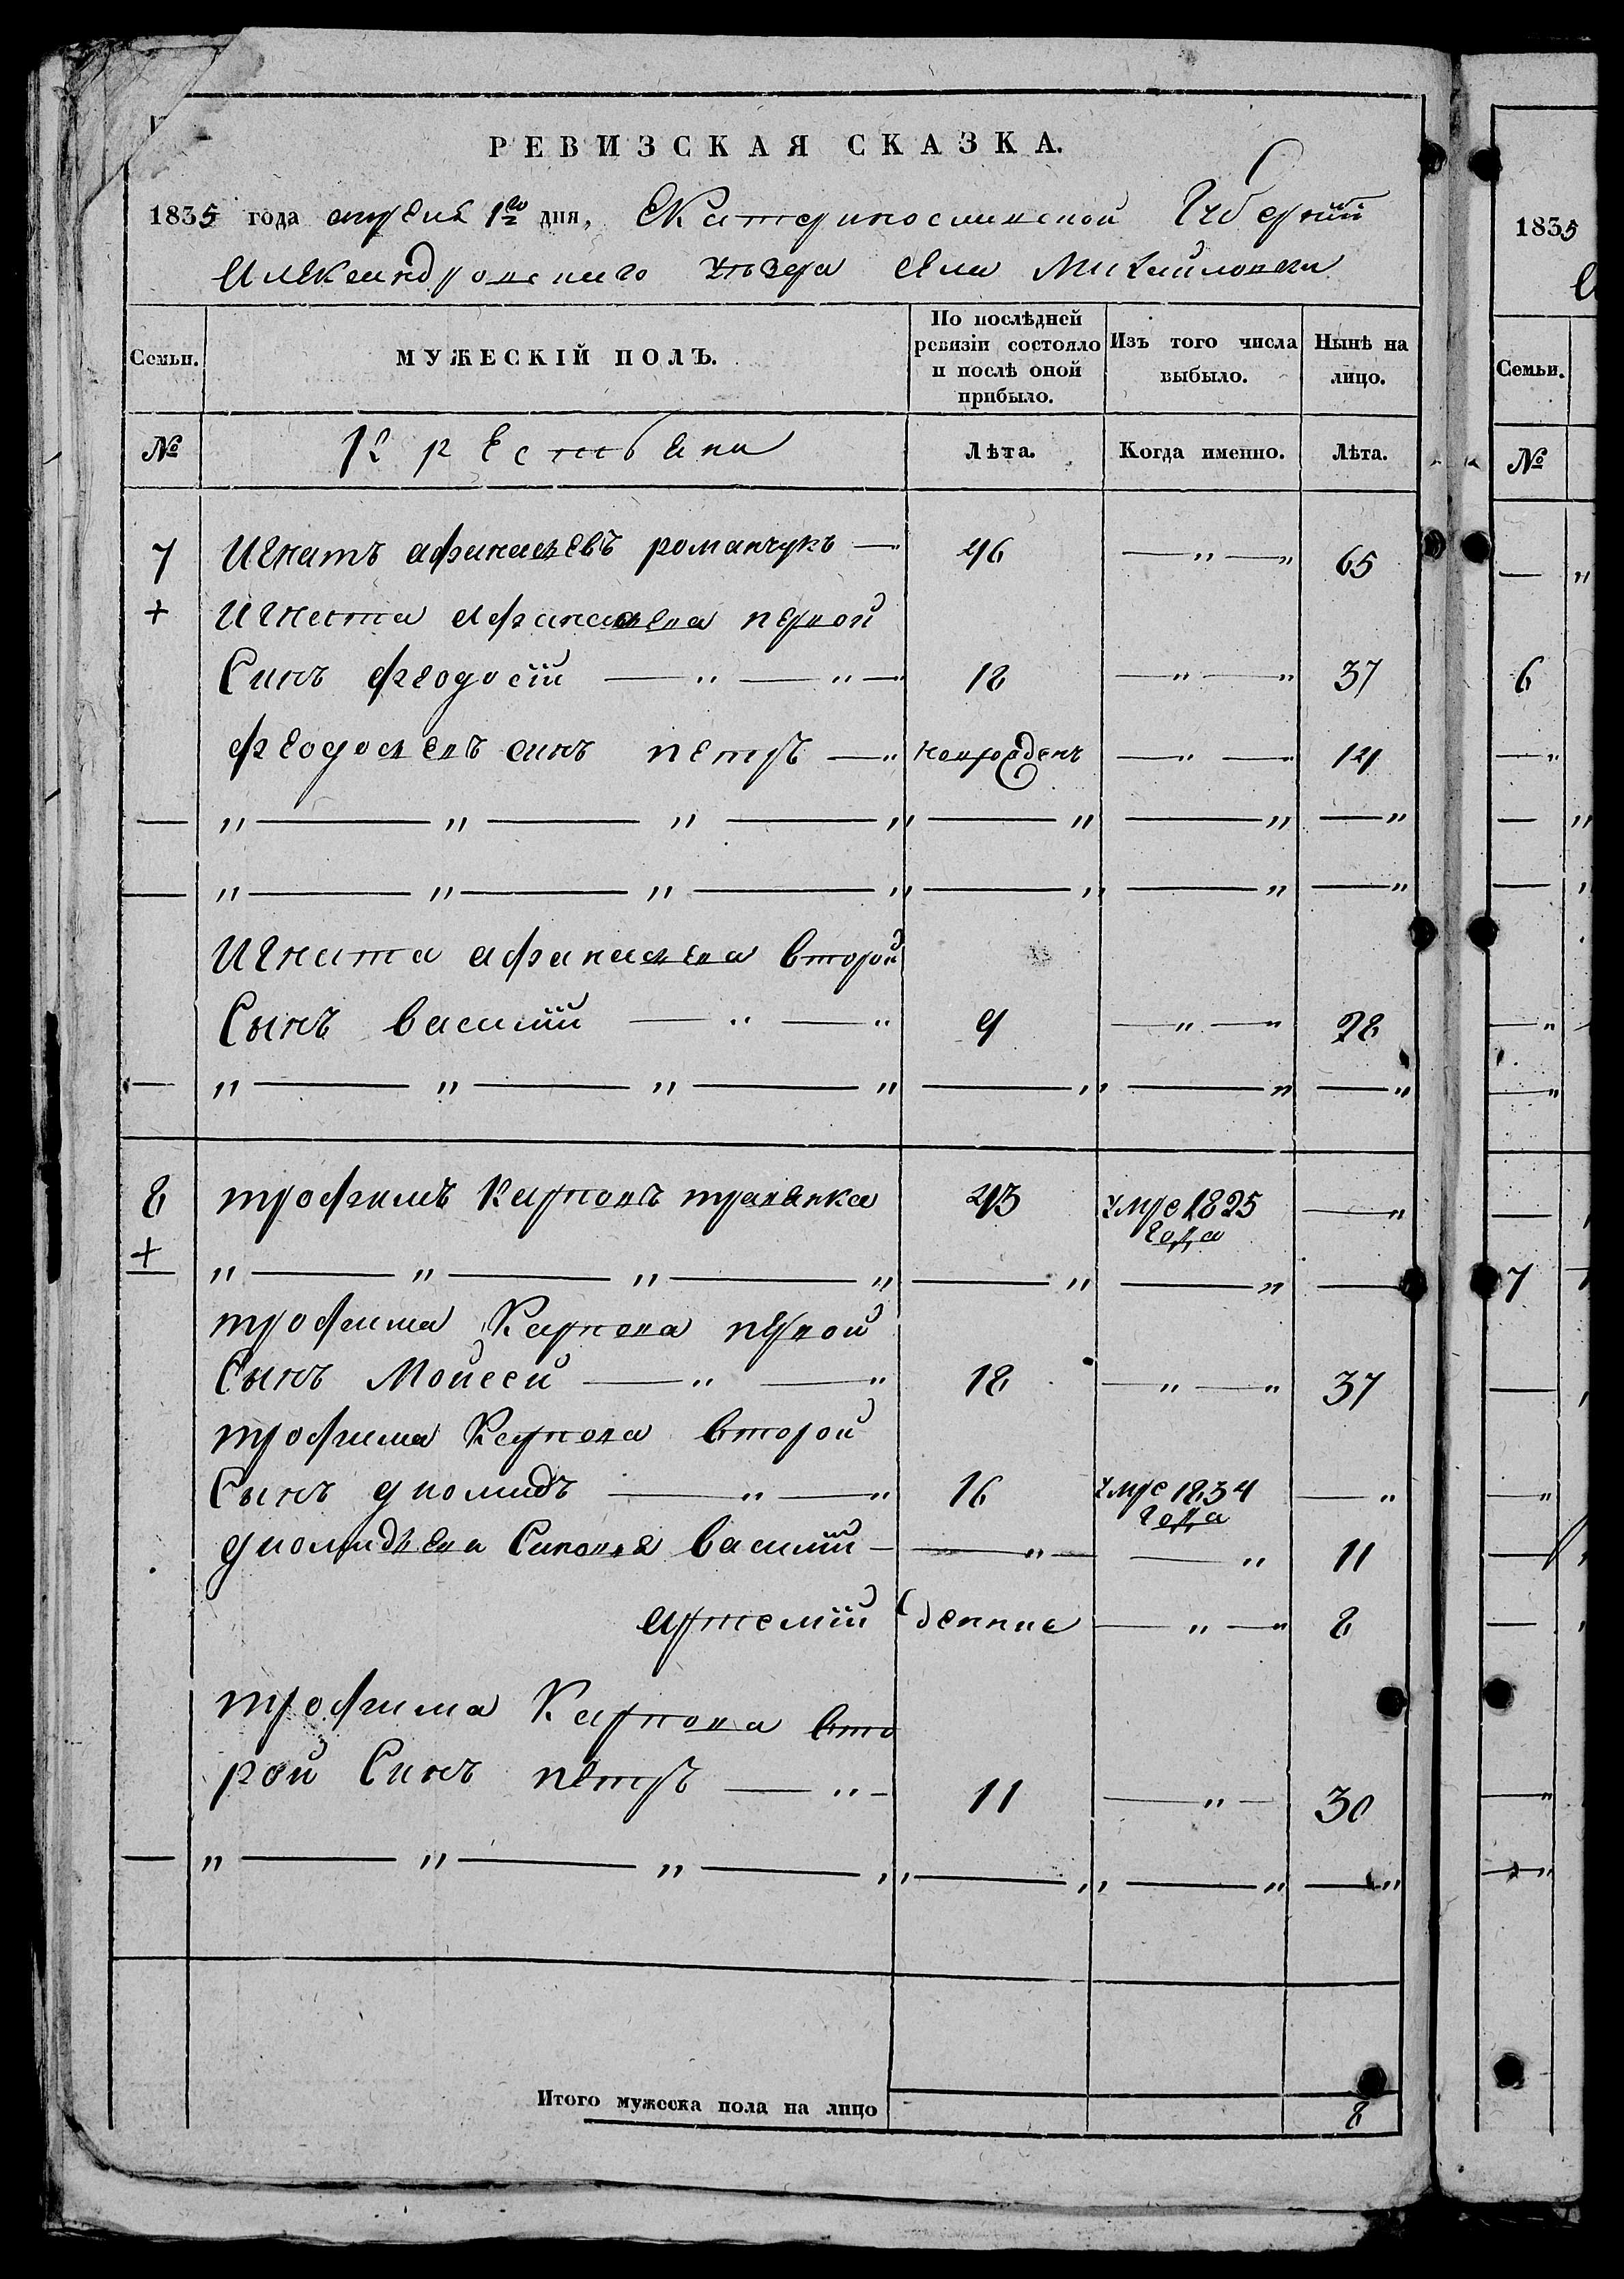 РЕВИЗСКАЯ СКАЗКА.
1835 года апреля 1го дня, Екатеринославской Губернiи
Александровскаго уезда села Михайловки
Семьи. МУЖЕСКІЙ ПОЛЪ. По послѣдней ревизіи состояло и послѣ оной прибыло. Изъ того числа выбыло. Нынѣ на лицо.
№ Крестьяни Лѣта. Когда именно. Лѣта.
7 Игнатъ афанасьевъ романчукъ — 46 — " — " 65
+ Игната афанасьева первой
Синъ феодосiй — " — " — 18 — " — " 37
феодосьевъ синъ петръ — " новрожденъ — " — " 14
— " — " — " — " — " — " — "
— " — " — " — " — " — " — "
Игната афанасьева второй
Сынъ василiй — " — " 9 — " — " 28
— " — " — " — " — " — " — "
8 трофимъ Карповъ 43 умре 1825 года — "
+
— " — " — " — " — " — " —
трофима Карпова первой
Сынъ Мойсей — " — " 18 — " — " 37
трофима Карпова второй
Сынъ диомидъ — " — " 16 умре 1834 года — "
диомидьева Синовья василiй — — " — — " 11
артемiй денние — " — " 8
трофима Карпова вто
рой Синъ петръ — " — 11 — " — 30
— " — " — " — " — " — " — "
Итого мужеска пола на лицо 8
1835
Семьи.
№
6
7